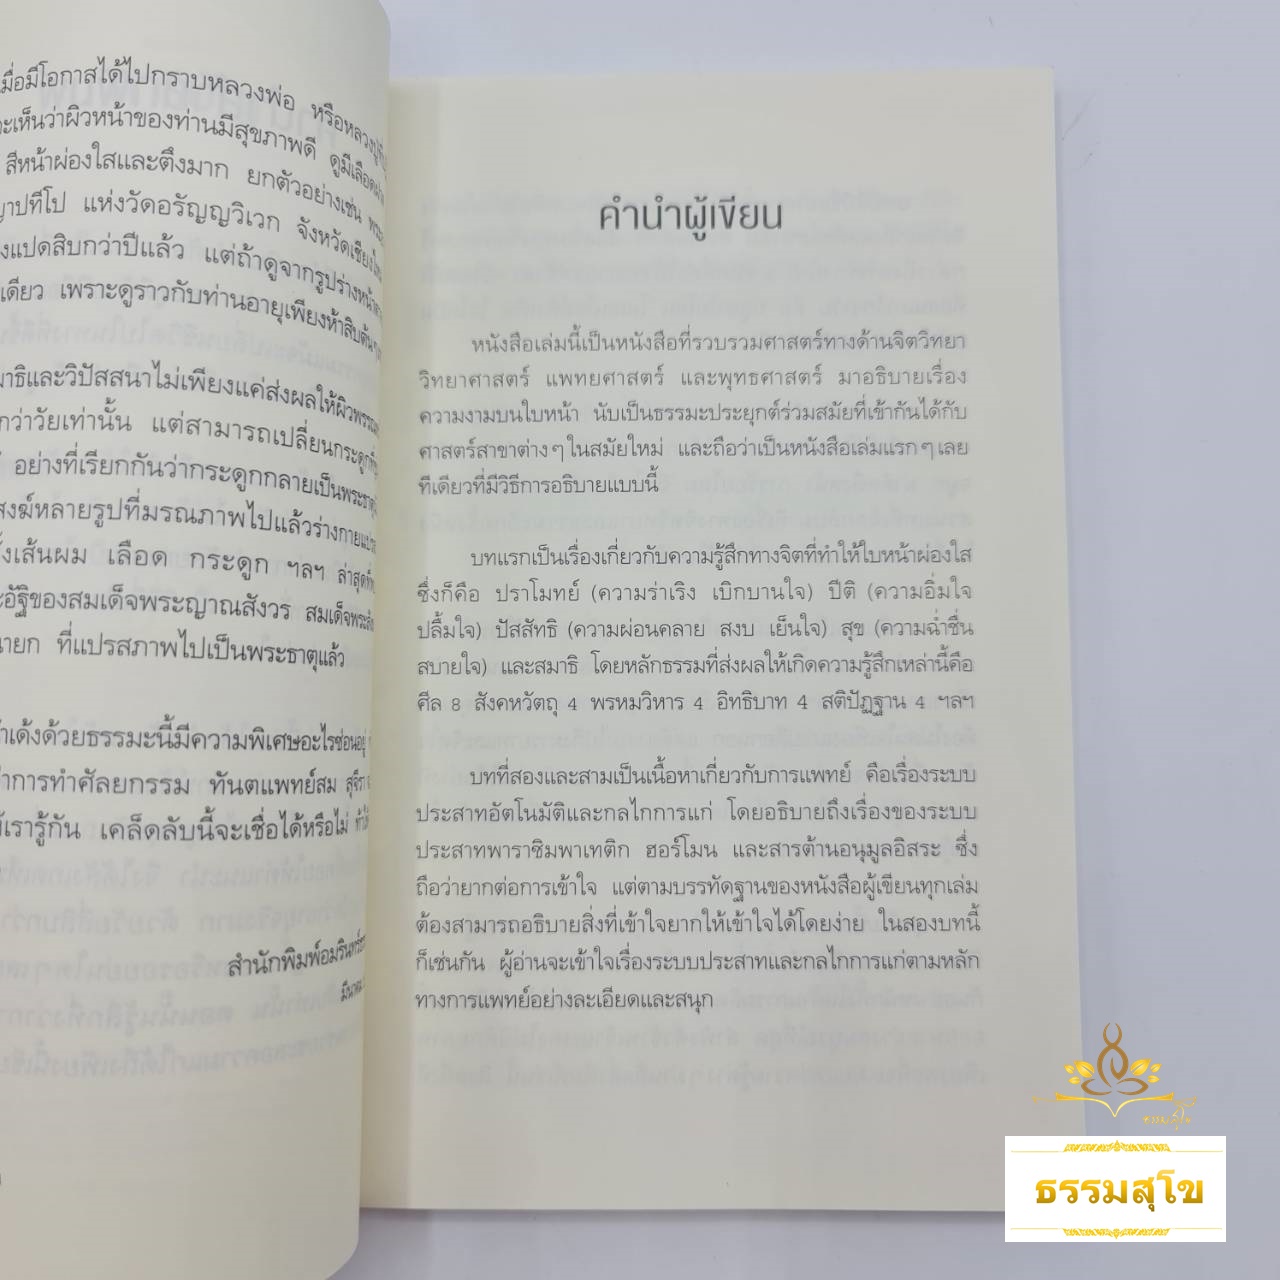 เมื่อมีโอกาสได้ไปกราบหลวงพ่อ หรือหลวงปู่
จะเห็นว่าผิวหน้าของท่านมีสุขภาพดี ดูมีเลือด
สีหน้าผ่องใสและตึงมาก ยกตัวอย่างเช่น
แห่งวัดอรัญญวิเวก จังหวัดเชียงใหม่
แปดสิบกว่าปีแล้ว แต่ถ้าดูจากรูปร่างหน้า
เดียว เพราะดูราวกับท่านอายุเพียงห้าสิบต้นๆ
และวิปัสสนาไม่เพียงแค่ส่งผลให้ผิวพรรณ
กว่าวัยเท่านั้น แต่สามารถเปลี่ยนกระดูก
อย่างที่เรียกกันว่ากระดูกกลายเป็นพระธาตุ
สงฆ์หลายรูปที่มรณภาพไปแล้วร่างกาย
เส้นผม เลือด กระดูก ฯลฯ ล่าสุด
อัฐิของสมเด็จพระญาณสังวร สมเด็จพระ
ที่แปรสภาพไปเป็นพระธาตุแล้ว
เด้งด้วยธรรมะนี้มีความพิเศษอะไรซ่อนอยู่
การทำศัลยกรรม ทันตแพทย์สม
เรารู้กัน เคล็ดลับนี้จะเชื่อได้หรือไม่
สำนักพิมพ์อมรินทร์
คำนำผู้เขียน
หนังสือเล่มนี้เป็นหนังสือที่รวบรวมศาสตร์ทางด้านจิตวิทยา
วิทยาศาสตร์ แพทยศาสตร์ และพุทธศาสตร์ มาอธิบายเรื่อง
ความงามบนใบหน้า นับเป็นธรรมะประยุกต์ร่วมสมัยที่เข้ากันได้กับ
ศาสตร์สาขาต่างๆ ในสมัยใหม่ และถือว่าเป็นหนังสือเล่มแรกๆ เลย
ทีเดียวที่มีวิธีการอธิบายแบบนี้
บทแรกเป็นเรื่องเกี่ยวกับความรู้สึกทางจิตที่ทำให้ใบหน้าผ่องใส
ซึ่งก็คือ ปราโมทย์ (ความร่าเริง เบิกบานใจ) ปีติ (ความอิ่มใจ
ปลื้มใจ) ปัสสัทธิ (ความผ่อนคลาย สงบ เย็นใจ) สุข (ความฉ่ำชื่น
สบายใจ) และสมาธิ โดยหลักธรรมที่ส่งผลให้เกิดความรู้สึกเหล่านี้คือ
ศีล 8 สังคหวัตถุ 4 พรหมวิหาร 4 อิทธิบาท 4 สติปัฏฐาน 4 ฯลฯ
บทที่สองและสามเป็นเนื้อหาเกี่ยวกับการแพทย์ คือเรื่องระบบ
ประสาทอัตโนมัติและกลไกการแก่ โดยอธิบายถึงเรื่องของระบบ
ประสาทพาราซิมพาเทติก ฮอร์โมน และสารต้านอนุมูลอิสระ ซึ่ง
ถือว่ายากต่อการเข้าใจ แต่ตามบรรทัดฐานของหนังสือผู้เขียนทุกเล่ม
ต้องสามารถอธิบายสิ่งที่เข้าใจยากให้เข้าใจได้โดยง่าย ในสองบทนี้
ก็เช่นกัน ผู้อ่านจะเข้าใจเรื่องระบบประสาทและกลไกการแก่ตามหลัก
ทางการแพทย์อย่างละเอียดและสนุก
ธรรมสุโข
ธรรมสุโข